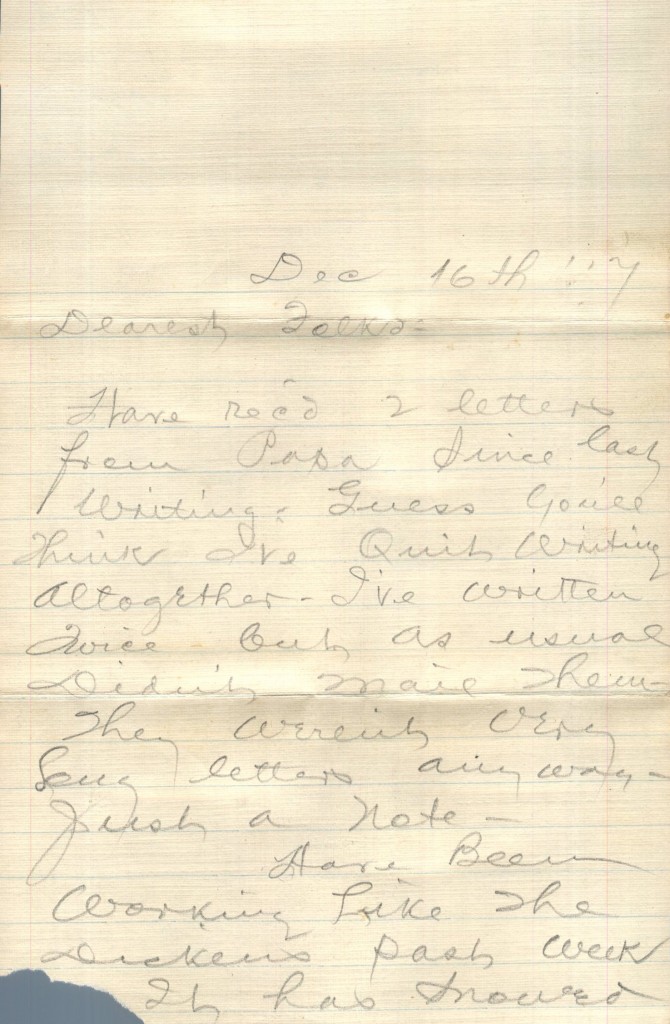 Dec 16th '17
Dearest Folks:
Have rec'd 2 letters
from Papa Since last
Writing. Guess You'll
Think I've Quit Writing
Altogether - I've written
Twice but as usual
Didn't Mail Them -
They Weren't Very
Long letters anyway -
Just a Note -
Have Been
Working Like The
Dickens past Week
It has Snowed